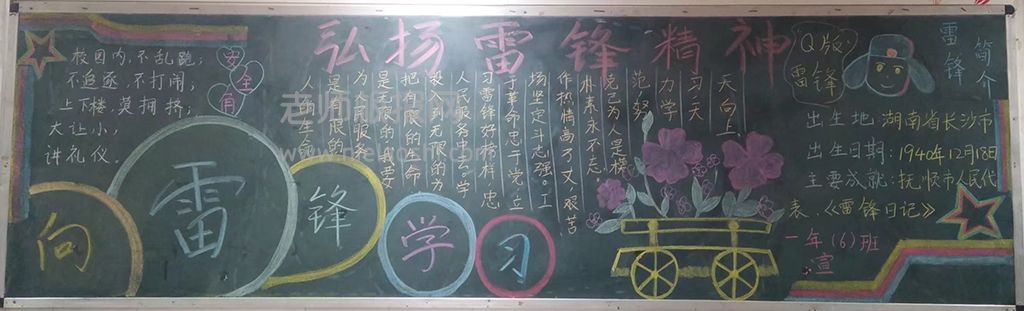 弘扬雷锋精神
校园内,不乱跑,
不追逐,不打闹,
上下楼,莫拥挤,
大让小,
讲礼仪。
安
全
向
雷
锋
学
习
人的生命
是有限的
为人民服务
是无限的,我要
把有限的生命,
投入到无限的为
人民服务中。学
习雷锋好榜样,忠
于革命忠于党,立
场坚定斗志强。工
作热情高万丈,艰苦
朴素永不忘
克己为人是模
范,努
力学
习,天
天向上
Q版
雷锋
雷锋
简介
出生地:湖南省长沙市
出生日期:1940年12月18日
主要成就:抚顺市人民代
表.《雷锋日记》
一年(6)班
宣